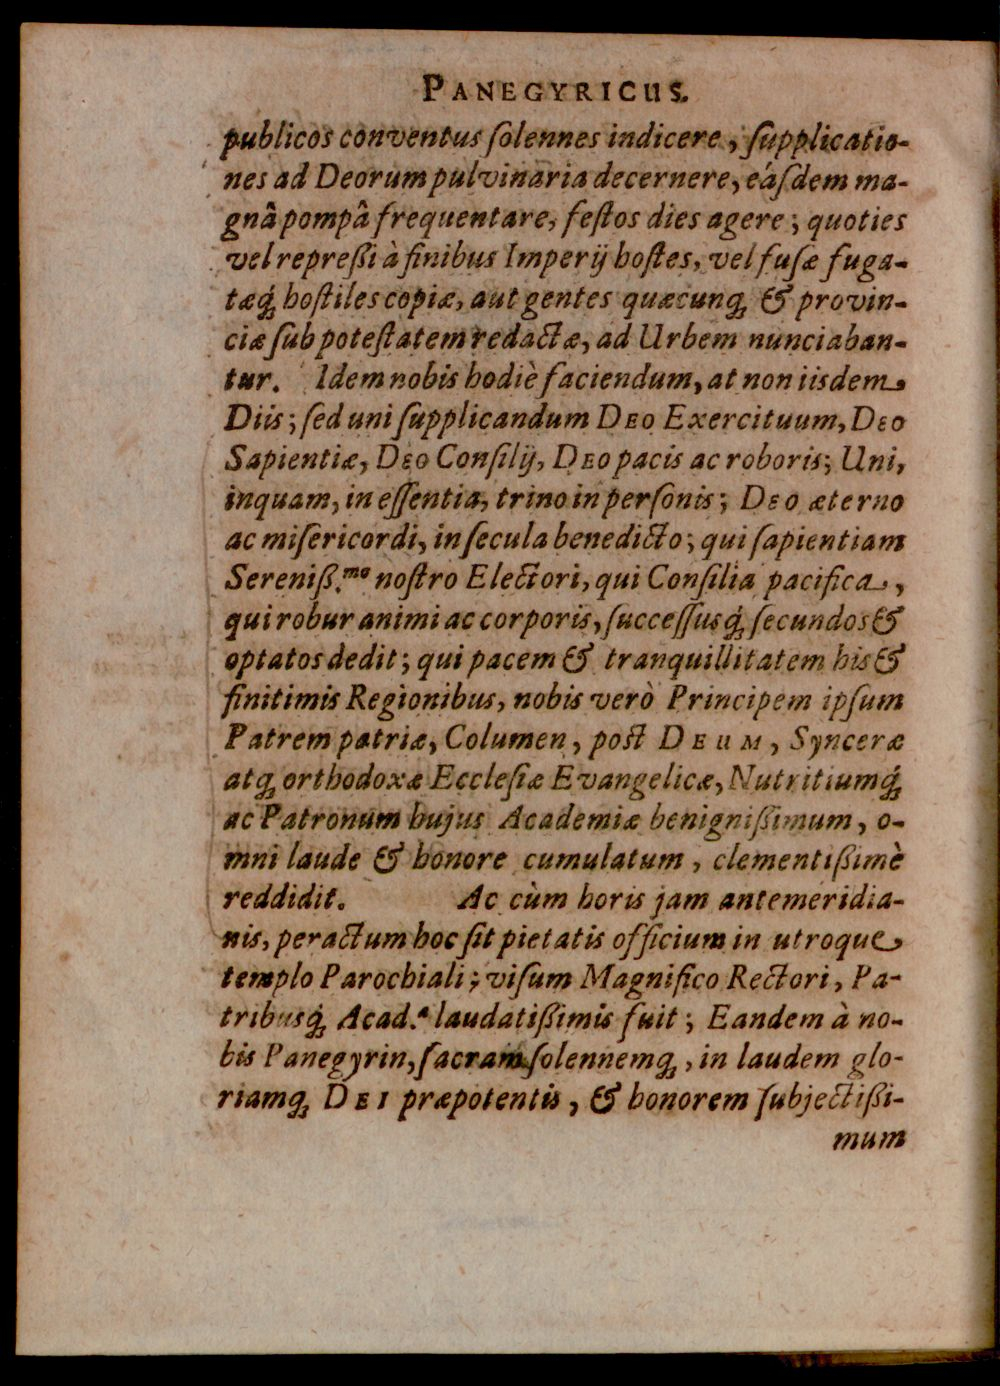 PANEGYRICUS.
publicos conventus ſolennes indicere, ſupplicatio-
nes ad Deorum pulvinaria decernere, eáſdem ma-
gnâ pompâ frequentare, feſtos dies agere; quoties
vel repreßi à finibus Imperij hoſtes, vel fuſæ fuga-
tæq́; hoſtiles copiæ, aut gentes quæcunq; & provin-
ciæ ſub poteſtatem redactæ, ad Urbem nunciaban-
tur. Idem nobis hodiè faciendum, at non iisdem
Diis; ſed uni ſupplicandum DEO Exercituum, DEO
Sapientiæ, DEO Conſilij, DEO pacis ac roboris; Uni,
inquam, in eſſentia, trino in perſonis; DEO æterno
ac miſericordi, in ſecula benedicto; qui ſapientiam
Sereniß.mo noſtro Electori, qui Conſilia pacifica,
qui robur animi ac corporis, ſucceſſusq́; ſecundos &
optatos dedit; qui pacem & tranquillitatem his &
finitimis Regionibus, nobis verò Principem ipſum
Patrem patriæ, Columen, poſt DEUM, Synceræ
atq; orthodoxæ Eccleſiæ Evangelicæ, Nutritiumq́;
ac Patronum hujus Academiæ benignißimum, o-
mni laude & honore cumulatum, clementißimè
reddidit. Ac cùm horis jam antemeridia-
nis, peractum hoc ſit pietatis officium in utroque
templo Parochiali; viſum Magnifico Rectori, Pa-
tribusq́; Acad.ᵃ laudatißimis fuit; Eandem à no-
bis Panegyrin, ſacram ſolennemq;, in laudem glo-
riamq; DEI præpotentis, & honorem ſubjectißi-
mum